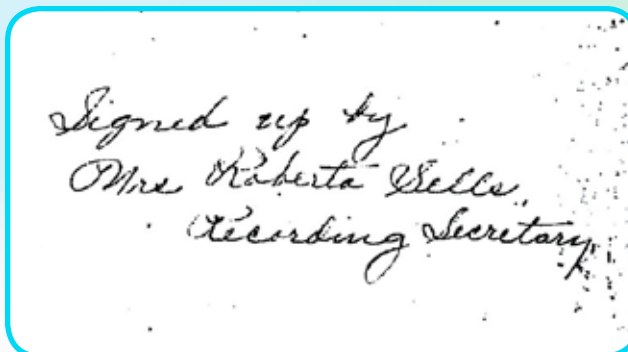 Signed up by
Mrs Roberta Sells,
Recording Secretary